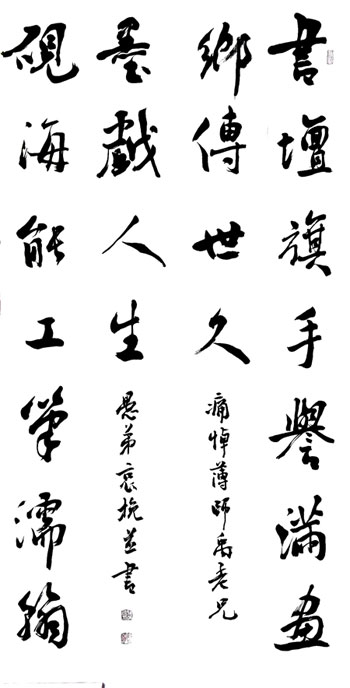 書壇旗手譽滿畫
鄉傳世久
痛悼薄師禹老兄
硯海能工筆濡翰
墨戲人生
愚弟哀挽並書